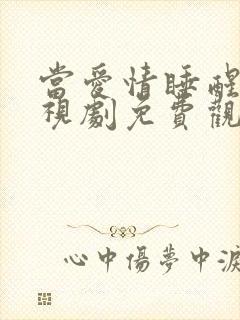 當愛情睡醒
視劇免費觀
心中傷夢中淚